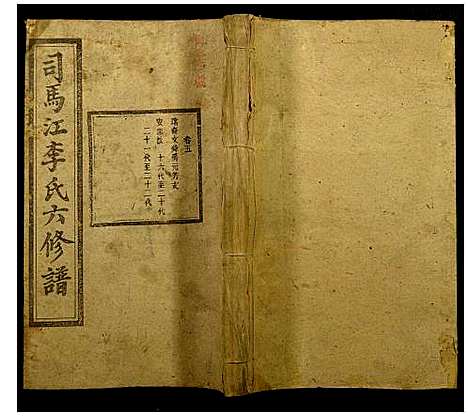 司馬江李氏六修譜
卷五
瑞裔文舜房元芳支
十六代至二十代
二十一代至二十二代